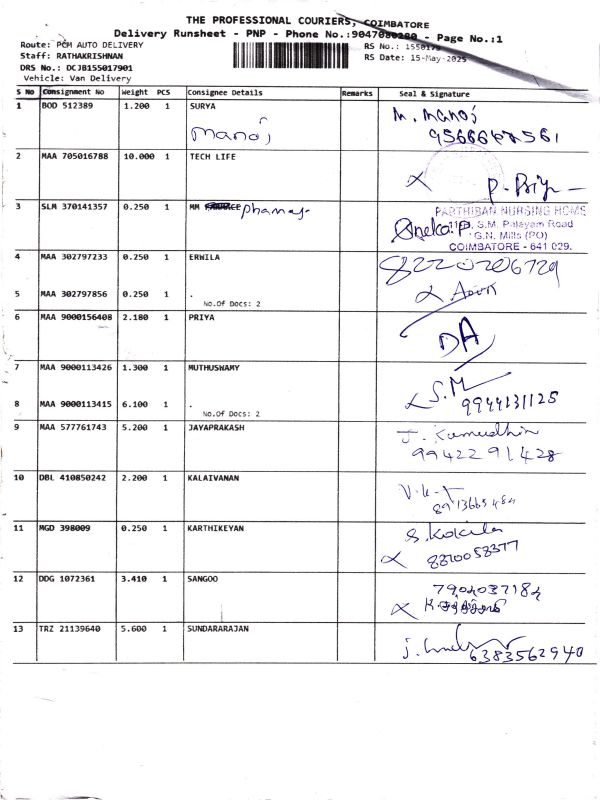 THE PROFESSIONAL COURIERS, COIMBATORE
Delivery Runsheet - PNP - Phone No.: - Page No.:1
Route: PCM AUTO DELIVERY
RS No.:
Staff: RATHAKRISHNAN
RS Date: 15-May-2025
DRS No.: DCJB155017901
Vehicle: Van Delivery
S No Consignment No Weight PCS Consignee Details Remarks Seal & Signature
1 BOD 512389 1.200 1 SURYA M. Manoj
Manoj
2 MAA 705016788 10.000 1 TECH LIFE
P. Priya
3 SLM 370141357 0.250 1 MM
PARTHIBAN NURSING HOME
S.M. Palayam Road
G.N. Mills (PO)
COIMBATORE - 641 029.
4 MAA 302797233 0.250 1 ERWILA
8220206729
5 MAA 302797856 0.250 1 .
No.Of Docs: 2
6 MAA 9000156408 2.180 1 PRIYA
DA
7 MAA 9000113426 1.300 1 MUTHUSWAMY
S.M
9944131125
8 MAA 9000113415 6.100 1 .
No.Of Docs: 2
9 MAA 577761743 5.200 1 JAYAPRAKASH
9942291428
10 DBL 410850242 2.200 1 KALAIVANAN
11 MGD 398009 0.250 1 KARTHIKEYAN S. Kokila
12 DDG 1072361 3.410 1 SANGOO
13 TRZ 21139640 5.600 1 SUNDARARAJAN
6383562940